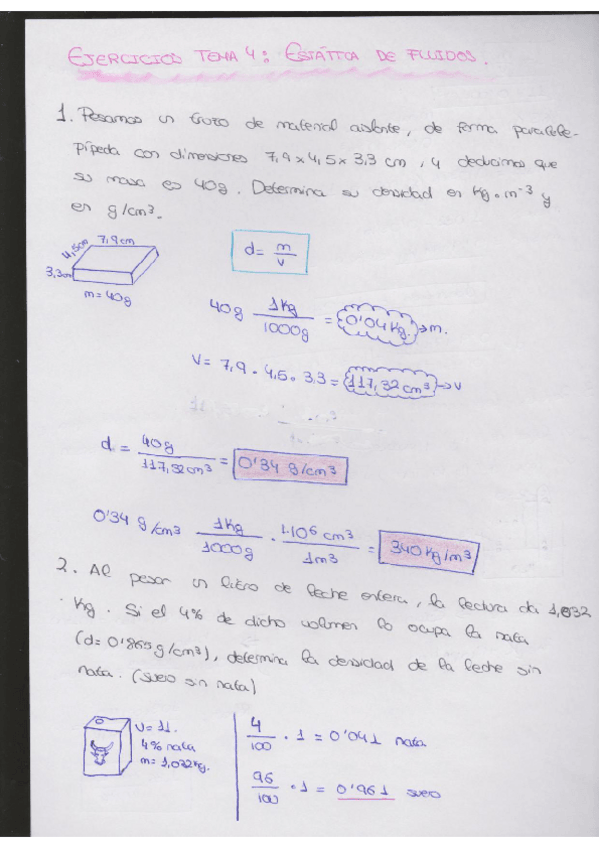 EJERCICIOS TEMA 4: ESTÁTICA DE FLUIDOS.
1. Pesamos un trozo de material aislante, de forma paralele-
pípeda con dimensiones 7,9 x 4,5 x 3,3 cm, y deducimos que
su masa es 40g. Determina su densidad en Kg · m⁻³ y
en g/cm³.
7,9cm
4,5cm
3,3cm
m= 40g
d= m/v
40g 1Kg/1000g = 0'04 Kg. → m.
V= 7,9 · 4,5 · 3,3 = 117,32 cm³ → V
d = 40g/117,32cm³ = 0'34 g/cm³
0'34 g/cm³ 1Kg/1000g · 1·10⁶ cm³/1m³ = 340 Kg/m³
2. Al pesar un litro de leche entera, la lectura da 1,032
Kg. Si el 4% de dicho volumen lo ocupa la nata
(d= 0'865 g/cm³), determina la densidad de la leche sin
nata. (suero sin nata)
V= 1l.
4% nata
m= 1,032Kg.
4/100 · 1 = 0'04 l nata
96/100 · 1 = 0'96 l suero